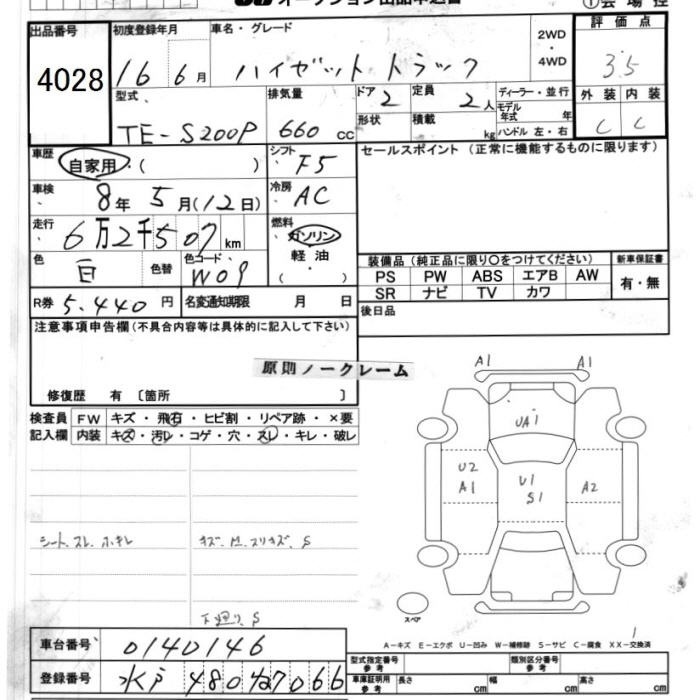 ①会場控
出品番号 初度登録年月 車名・グレード 2WD・4WD 評価点
4028 16年 6月 ハイゼットトラック 3.5
型式 排気量 ドア 定員 ディーラー・並行 外装 内装
TE-S200P 660cc 2 2人 モデル年式 年 C C
形状 積載 kg ハンドル 左・右
車歴 自家用・( ) シフト F5 セールスポイント(正常に機能するものに限ります)
車検 8年 5月(12日) 冷房 AC
走行 6万2千507km 燃料 ガソリン・軽油・( )
色 白 色替 色コード W09
装備品(純正品に限り○をつけてください) 新車保証書
PS PW ABS エアB AW 有・無
SR ナビ TV カワ
R券 5,440円 名変通知期限 月 日 後日品
注意事項申告欄(不具合内容等は具体的に記入して下さい)
原則ノークレーム
修復歴 有〔箇所 〕
検査員 FW キズ・飛石・ヒビ割・リペア跡・×要
記入欄 内装 キズ・汚レ・コゲ・穴・スレ・キレ・破レ
A1 A1
UA1
U2 A1 U1 S1 A2
シート、スレ、
キズ、 スリキズ、S
下廻り、S
スペア
1
A-キズ E-エクボ U-凹み W-補修跡 S-サビ C-腐食 XX-交換済
車台番号 0140146
型式指定番号 参考 類別区分番号 参考
登録番号 水戸 480 7066
車庫証明用 参考 長さ cm 幅 cm 高さ cm